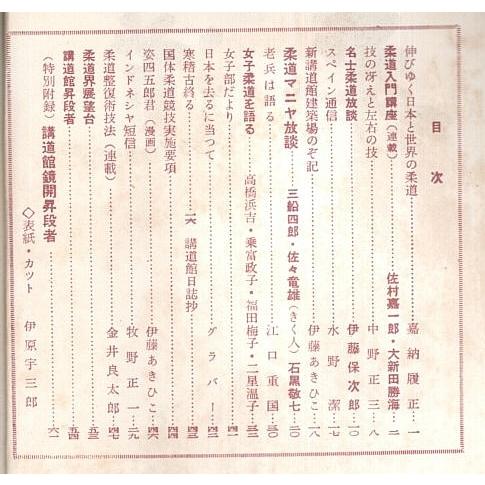 目次
伸びゆく日本と世界の柔道……嘉納履正…一
柔道入門講座(連載)……佐村嘉一郎・大新田勝海…二
技の冴えと左右の技……中野正三…八
名士柔道放談……伊藤保次郎…一〇
スペイン通信……水野潔…一七
新講道館建築場のぞ記……伊藤あきひこ…一八
柔道マニヤ放談……三船四郎・佐々竜雄(きく人)石黒敬七…二〇
老兵は語る……江口重国…三〇
女子柔道を語る……高橋浜吉・乗富政子・福田梅子・二星温子…三二
女子部だより……四一
日本を去るに当つて……グラバー…四二
寒稽古終る……一六 講道館日誌抄……四三
国体柔道競技実施要項……四四
姿四五郎君(漫画)……伊藤あきひこ…四六
インドネシヤ短信……牧野正一…二九
柔道整復術技法(連載)……金井良太郎…四七
柔道界展望台……五三
講道館昇段者……五四
(特別附録)講道館鏡開昇段者……六一
◇表紙・カット 伊原宇三郎